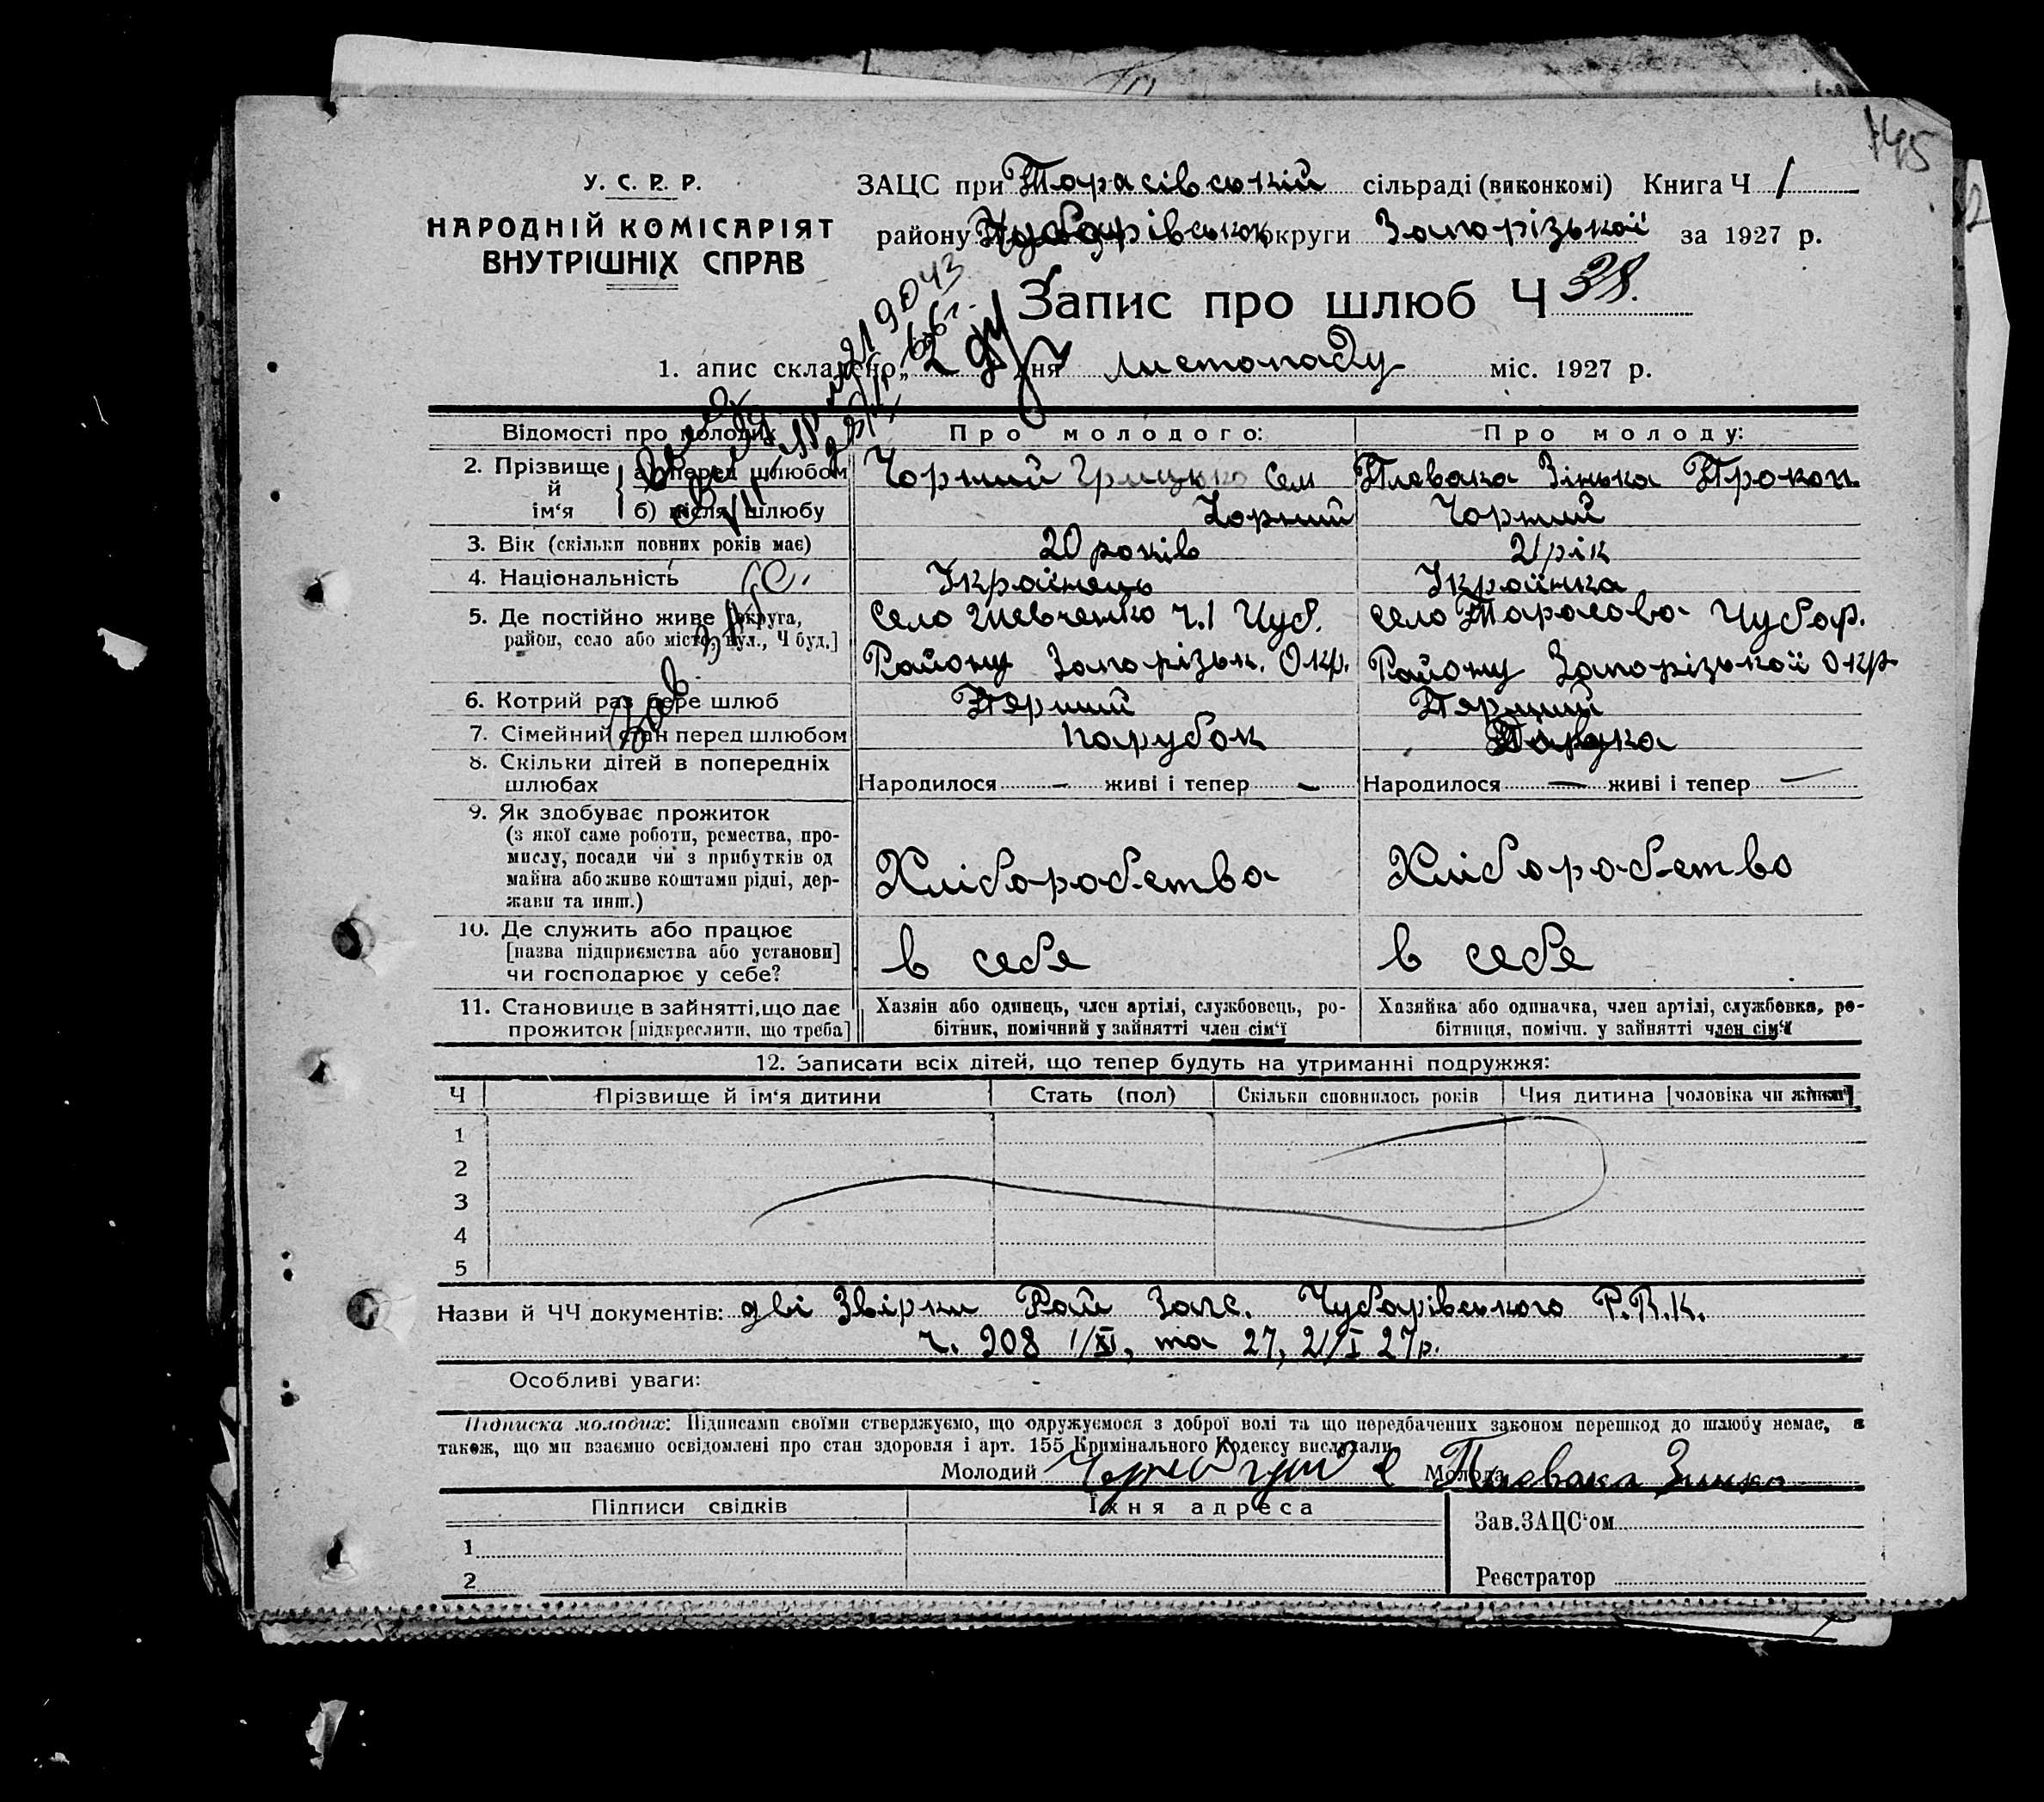 145
У. С. Р. Р.
НАРОДНІЙ КОМІСАРІЯТ
ВНУТРІШНІХ СПРАВ
ЗАЦС при Торасівській сільраді (виконкомі) Книга Ч 1
району Чубарівськ округи Запорізької за 1927 р.
Запис про шлюб Ч 38.
1. апис складено „ 2 дня листопаду міс. 1927 р.
Відомості про молодих
Про молодого:
Про молоду:
2. Прізвище й ім‘я
а) перед шлюбом
Чорний Грицько Сем
Плевака Зінька Прокоп.
б) після шлюбу
Чорний
Чорний
3. Вік (скільки повних років має)
20 років
21 рік
4. Національність
Українець
Українка
5. Де постійно живе [округа,
район, село або місто, вул., Ч буд.]
Село Шевченко ч.1 Чуб.
Району Запорізьк. Окр.
село Торасовка Чубар.
Району Запорізької Окр
6. Котрий раз бере шлюб
Перший
Перший
7. Сімейний стан перед шлюбом
парубок
8. Скільки дітей в попередніх
шлюбах
Народилося — живі і тепер —
Народилося — живі і тепер —
9. Як здобуває прожиток
(з якої саме роботи, ремества, про-
мислу, посади чи з прибутків од
майна або живе коштами рідні, дер-
жави та инш.)
Хліборобство
Хліборобство
10. Де служить або працює
[назва підприємства або установи]
чи господарює у себе?
в себе
в себе
11. Становище в зайнятті, що дає
прожиток [підкреслити, що треба]
Хазяїн або одинець, член артілі, службовець, ро-
бітник, помічний у зайнятті член сім‘ї
Хазяйка або одиначка, член артілі, службовка, ро-
бітниця, помічн. у зайнятті член сім‘ї
12. Записати всіх дітей, що тепер будуть на утриманні подружжя:
Ч
Прізвище й ім‘я дитини
Стать (пол)
Скільки сповнилось років
Чия дитина [чоловіка чи жінки]
1
2
3
4
5
Назви й ЧЧ документів: дві Звірки Рай Загс. Чубарівського Р.В.К.
ч. 908 1/XI, та 27, 21/I 27р.
Особливі уваги:
Підписка молодих: Підписами своїми стверджуємо, що одружуємося з доброї волі та що передбачених законом перешкод до шлюбу немає, а
також, що ми взаємно освідомлені про стан здоровля і арт. 155 Кримінального Кодексу вислухали
Молодий
Молода Плевака Зинка
Підписи свідків
Їхня адреса
1
2
Зав.ЗАЦС‘ом
Реєстратор